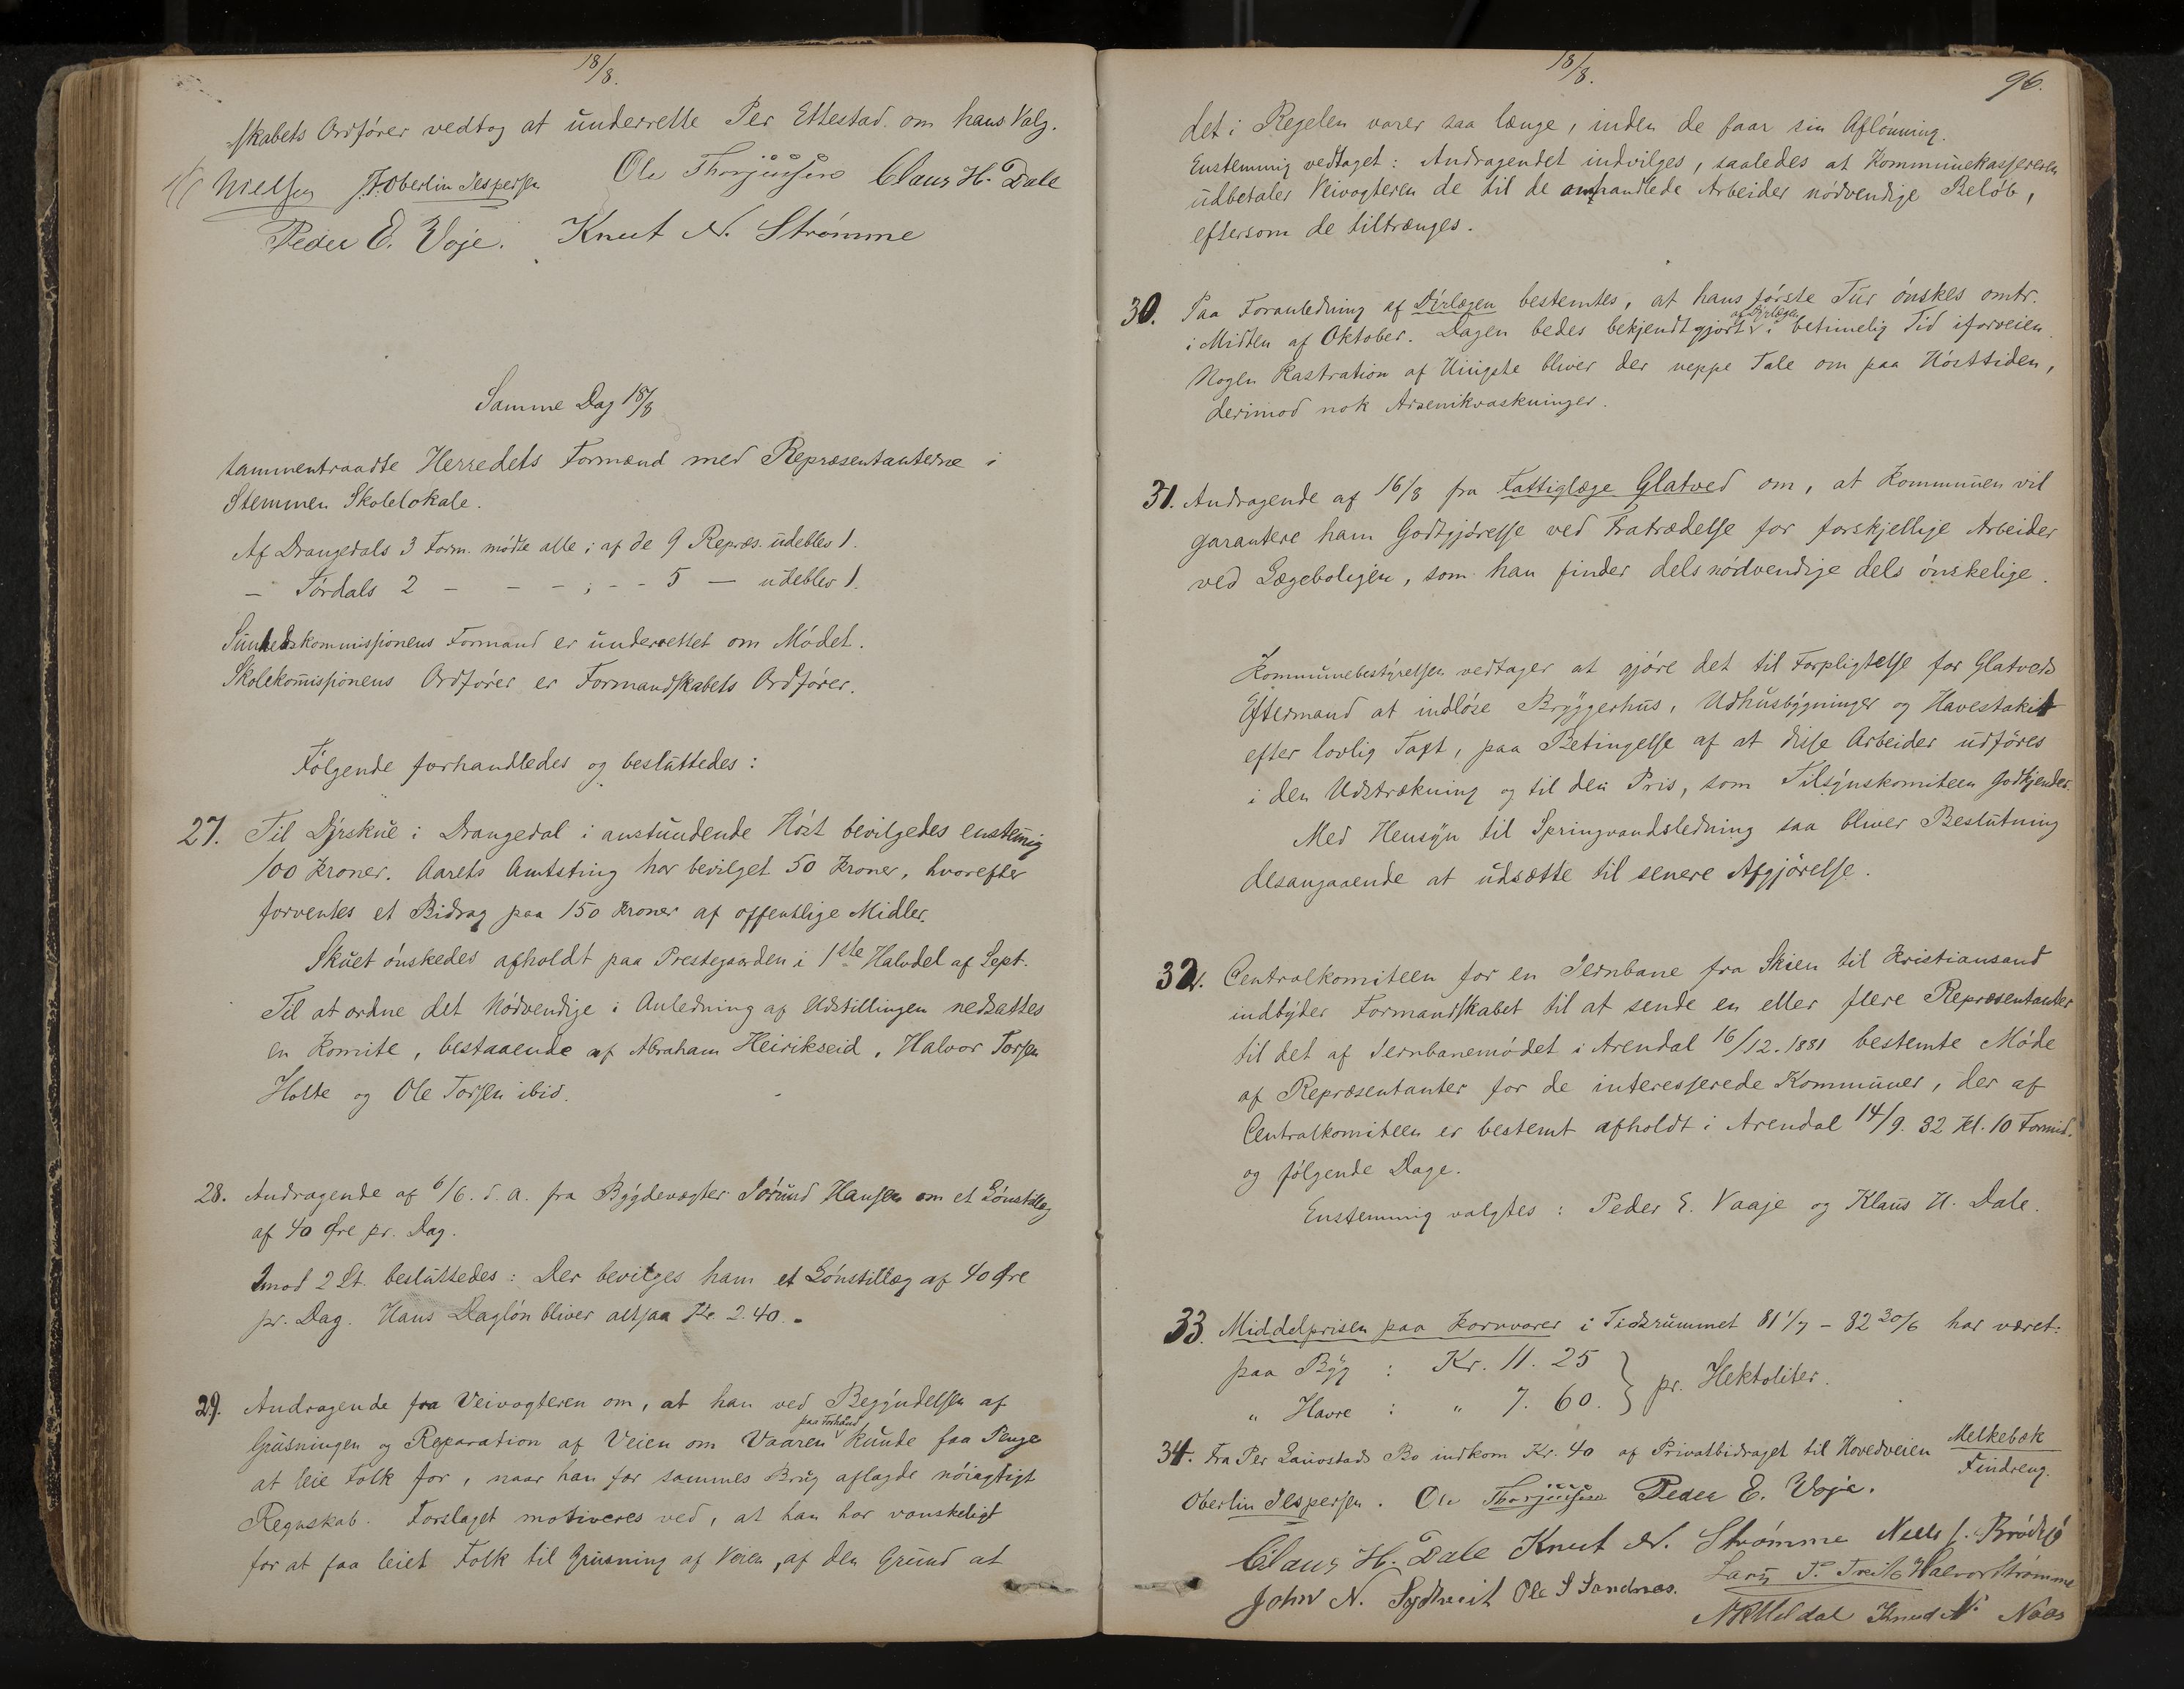 18/8.
skabets Ordfører vedtog at underrette Per Ettestad om hans Valg.
Nielsen J. Oberlin Jespersen Ole Thorjussen Claus H. Dale
Peder E. Voje. Knut N. Strømme
Samme Dag 18/8
sammentraadte Herredets Formænd med Repræsentanterne i
Stemmen Skolelokale.
Af Drangedals 3 Form. mødte alle; af de 9 Repræs. udeblev 1.
— Tørdals 2 — — — ; - - 5 — udeblev 1.
Sunhedskommissionens Formand er underrettet om Mødet.
Skolekommissionens Ordfører er Formandskabets Ordfører.
Følgende forhandledes og besluttedes:
27. Til Dyrskue i Drangedal i anstundende Høst bevilgedes enstemmig
100 Kroner. Aarets Amtsting har bevilget 50 Kroner, hvorefter
forventes et Bidrag paa 150 Kroner af offentlige Midler.
Skuet ønskedes afholdt paa Prestegaarden i 1ste Halvdel af Sept.
Til at ordne det Nødvendige i Anledning af Udstillingen nedsattes
en Komite, bestaaende af Abraham Heirikseid, Halvor Torsen
Holte og Ole Torsen ibid.
28. Andragende af 6/6. d. a. fra Bygdevægter Jørund Hansen om et Lønstillæg
af 40 Øre pr. Dag.
Imod 2 St. besluttedes: Der bevilges ham et Lønstillæg af 40 Øre
pr. Dag. Hans Dagløn bliver altsaa Kr. 2.40.
29. Andragende fra Veivogteren om, at han ved Begyndelsen af
Grusningen og Reparation af Veien om Vaaren paa Forhaand kunde faa Penge
at leie Folk for, naar han for sammes Brug aflagde nøiagtigt
Regnskab. Forslaget motiveres ved, at han har vanskeligt
for at faa leiet Folk til Grusning af Veien, af den Grund at
18/8.
96.
det i Regelen varer saa længe, inden de faar sin Aflønning.
Enstemmig vedtaget: Andragendet indvilges, saaledes at Kommunekassereren
udbetaler Veivogteren de til de omhandlede Arbeider nødvendige Beløb,
eftersom de tiltrænges.
30. Paa Foranledning af Dyrlægen bestemtes, at hans første Tur ønskes omtr.
i Midten af Oktober. Dagen bedes bekjendtgjort af Dyrlægen i betimelig Tid iforveien.
Nogen Kastration af Hingste bliver der neppe Tale om paa Høsttiden,
derimod nok Arsenikvaskninger.
31. Andragende af 16/8 fra Fattiglæge Glatved om, at Kommunen vil
garantere ham Godtgjørelse ved Fratrædelse for forskjellige Arbeider
ved Lægeboligen, som han finder dels nødvendige dels ønskelige.
Kommunebestyrelsen vedtager at gjøre det til Forpligtelse for Glatveds
Eftermand at indløse Bryggerhus, Udhusbygninger og Havestakit
efter lovlig Taxt, paa Betingelse af at disse Arbeider udføres
i den Udstrækning og til den Pris, som Tilsynskomiteen Godkjender.
Med Hensyn til Springvandsledning saa bliver Beslutning
desangaaende at udsætte til senere Afgjørelse.
32. Centralkomiteen for en Jernbane fra Skien til Kristiansand
indbyder Formandskabet til at sende en eller flere Repræsentanter
til det af Jernbanemødet i Arendal 16/12. 1881 bestemte Møde
af Repræsentanter for de interesserede Kommuner, der af
Centralkomiteen er bestemt afholdt i Arendal 14/9. 82 Kl. 10 Formid.
og følgende Dage.
Enstemmig valgtes: Peder E. Vaaje og Klaus H. Dale.
33. Middelprisen paa Kornvarer i Tidsrummet 81 1/7 – 82 30/6 har været:
paa Byg : Kr. 11. 25
" Havre : " 7. 60. } pr. Hektoliter.
34. Fra Per Lauvstads Bo indkom Kr. 40 af Privatbidraget til Hovedveien Melkebæk
Findreng.
Oberlin Jespersen. Ole Thorjussen Peder E. Voje.
Claus H. Dale Knut N. Strømme Niels J. Brødsjø
John N. Ole S Sandnes. Lars P. Halvor Strømme
Knud N. Næs